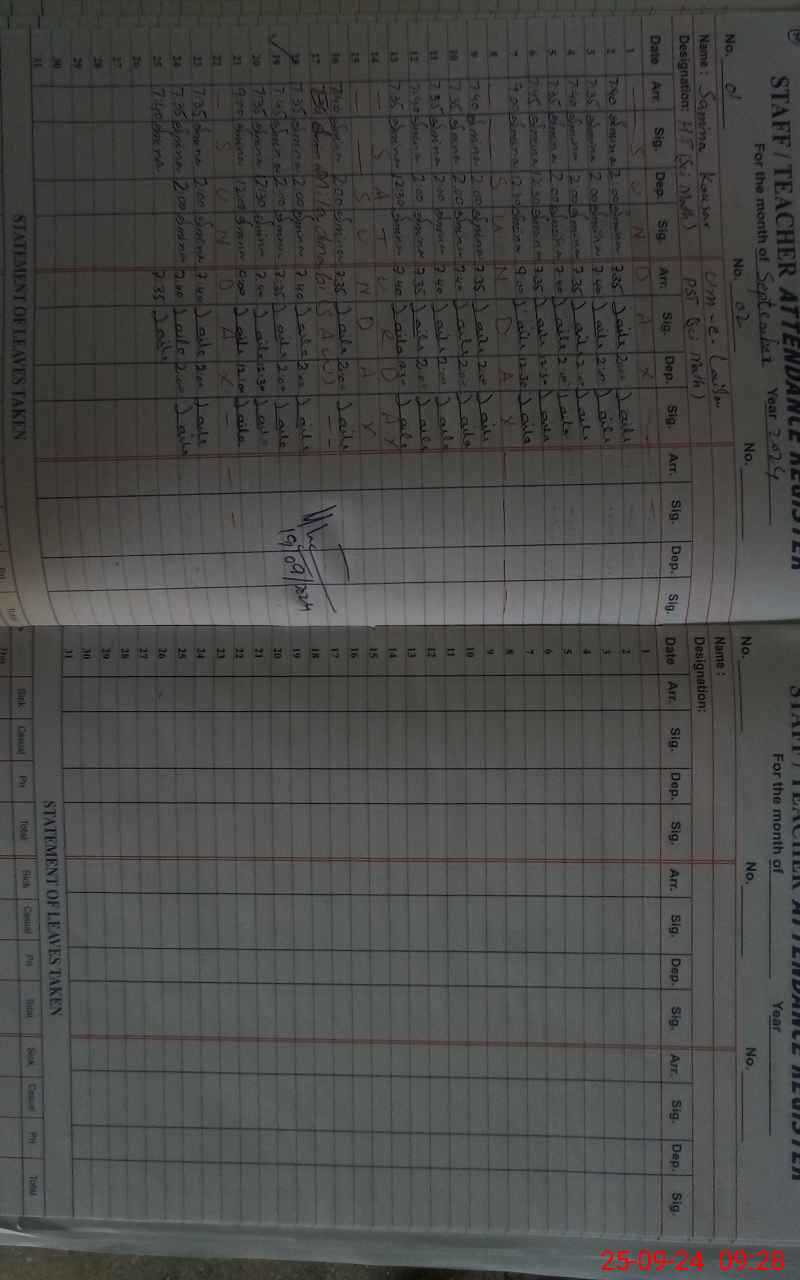 STAFF / TEACHER ATTENDANCE REGISTER
For the month of September Year 2024
No. 01 No. 02 No.
Name : Samina Kousar Um-e-Laila
Designation: HT (Sci Math) PST (Sci Math)
Date Arr. Sig. Dep. Sig. Arr. Sig. Dep. Sig. Arr. Sig. Dep. Sig.
1 — S U N D A Y — —
2 7.40 Samina 2.00 Samina 7.35 Laila 2.00 Laila
3 7.35 Samina 2.00 Samina 7.40 Laila 2.00 Laila
4 7.40 Samina 2.00 Samina 7.35 Laila 2.00 Laila
5 7.35 Samina 2.00 Samina 7.40 Laila 2.00 Laila
6 7.35 Samina 12.30 Samina 7.35 Laila 12.30 Laila
7 9.00 Samina 12.30 Samina 9.00 Laila 12.30 Laila
8 — S U N D A Y —
9 7.40 Samina 2.00 Samina 7.35 Laila 2.00 Laila
10 7.35 Samina 2.00 Samina 7.40 Laila 2.00 Laila
11 7.35 Samina 2.00 Samina 7.40 Laila 2.00 Laila
12 7.40 Samina 2.00 Samina 7.35 Laila 2.00 Laila
13 7.35 Samina 12.30 Samina 7.40 Laila 12.30 Laila
14 — S A T U R D A Y
15 — S U N D A Y
16 7.40 Samina 2.00 Samina 7.35 Laila 2.00 Laila
17
18 7.35 Samina 2.00 Samina 7.40 Laila 2.00 Laila
19 7.45 Samina 2.00 Samina 7.35 Laila 2.00 Laila
19/09/2024
20 7.35 Samina 12.30 Samina 7.40 Laila 12.30 Laila
21 9.00 Samina 12.00 Samina 9.00 Laila 12.00 Laila
22 — S U N D A Y — — —
23 7.35 Samina 2.00 Samina 7.40 Laila 2.00 Laila
24 7.35 Samina 2.00 Samina 7.40 Laila 2.00 Laila
25 7.40 Samina 7.35 Laila
26
27
28
29
30
31
STATEMENT OF LEAVES TAKEN
STAFF / TEACHER ATTENDANCE REGISTER
For the month of Year
No. No. No.
Name :
Designation:
Date Arr. Sig. Dep. Sig. Arr. Sig. Dep. Sig. Arr. Sig. Dep. Sig.
1
2
3
4
5
6
7
8
9
10
11
12
13
14
15
16
17
18
19
20
21
22
23
24
25
26
27
28
29
30
31
STATEMENT OF LEAVES TAKEN
Sick Casual Pri Total Sick Casual Pri Total Sick Casual Pri Total
25-09-24 09:28